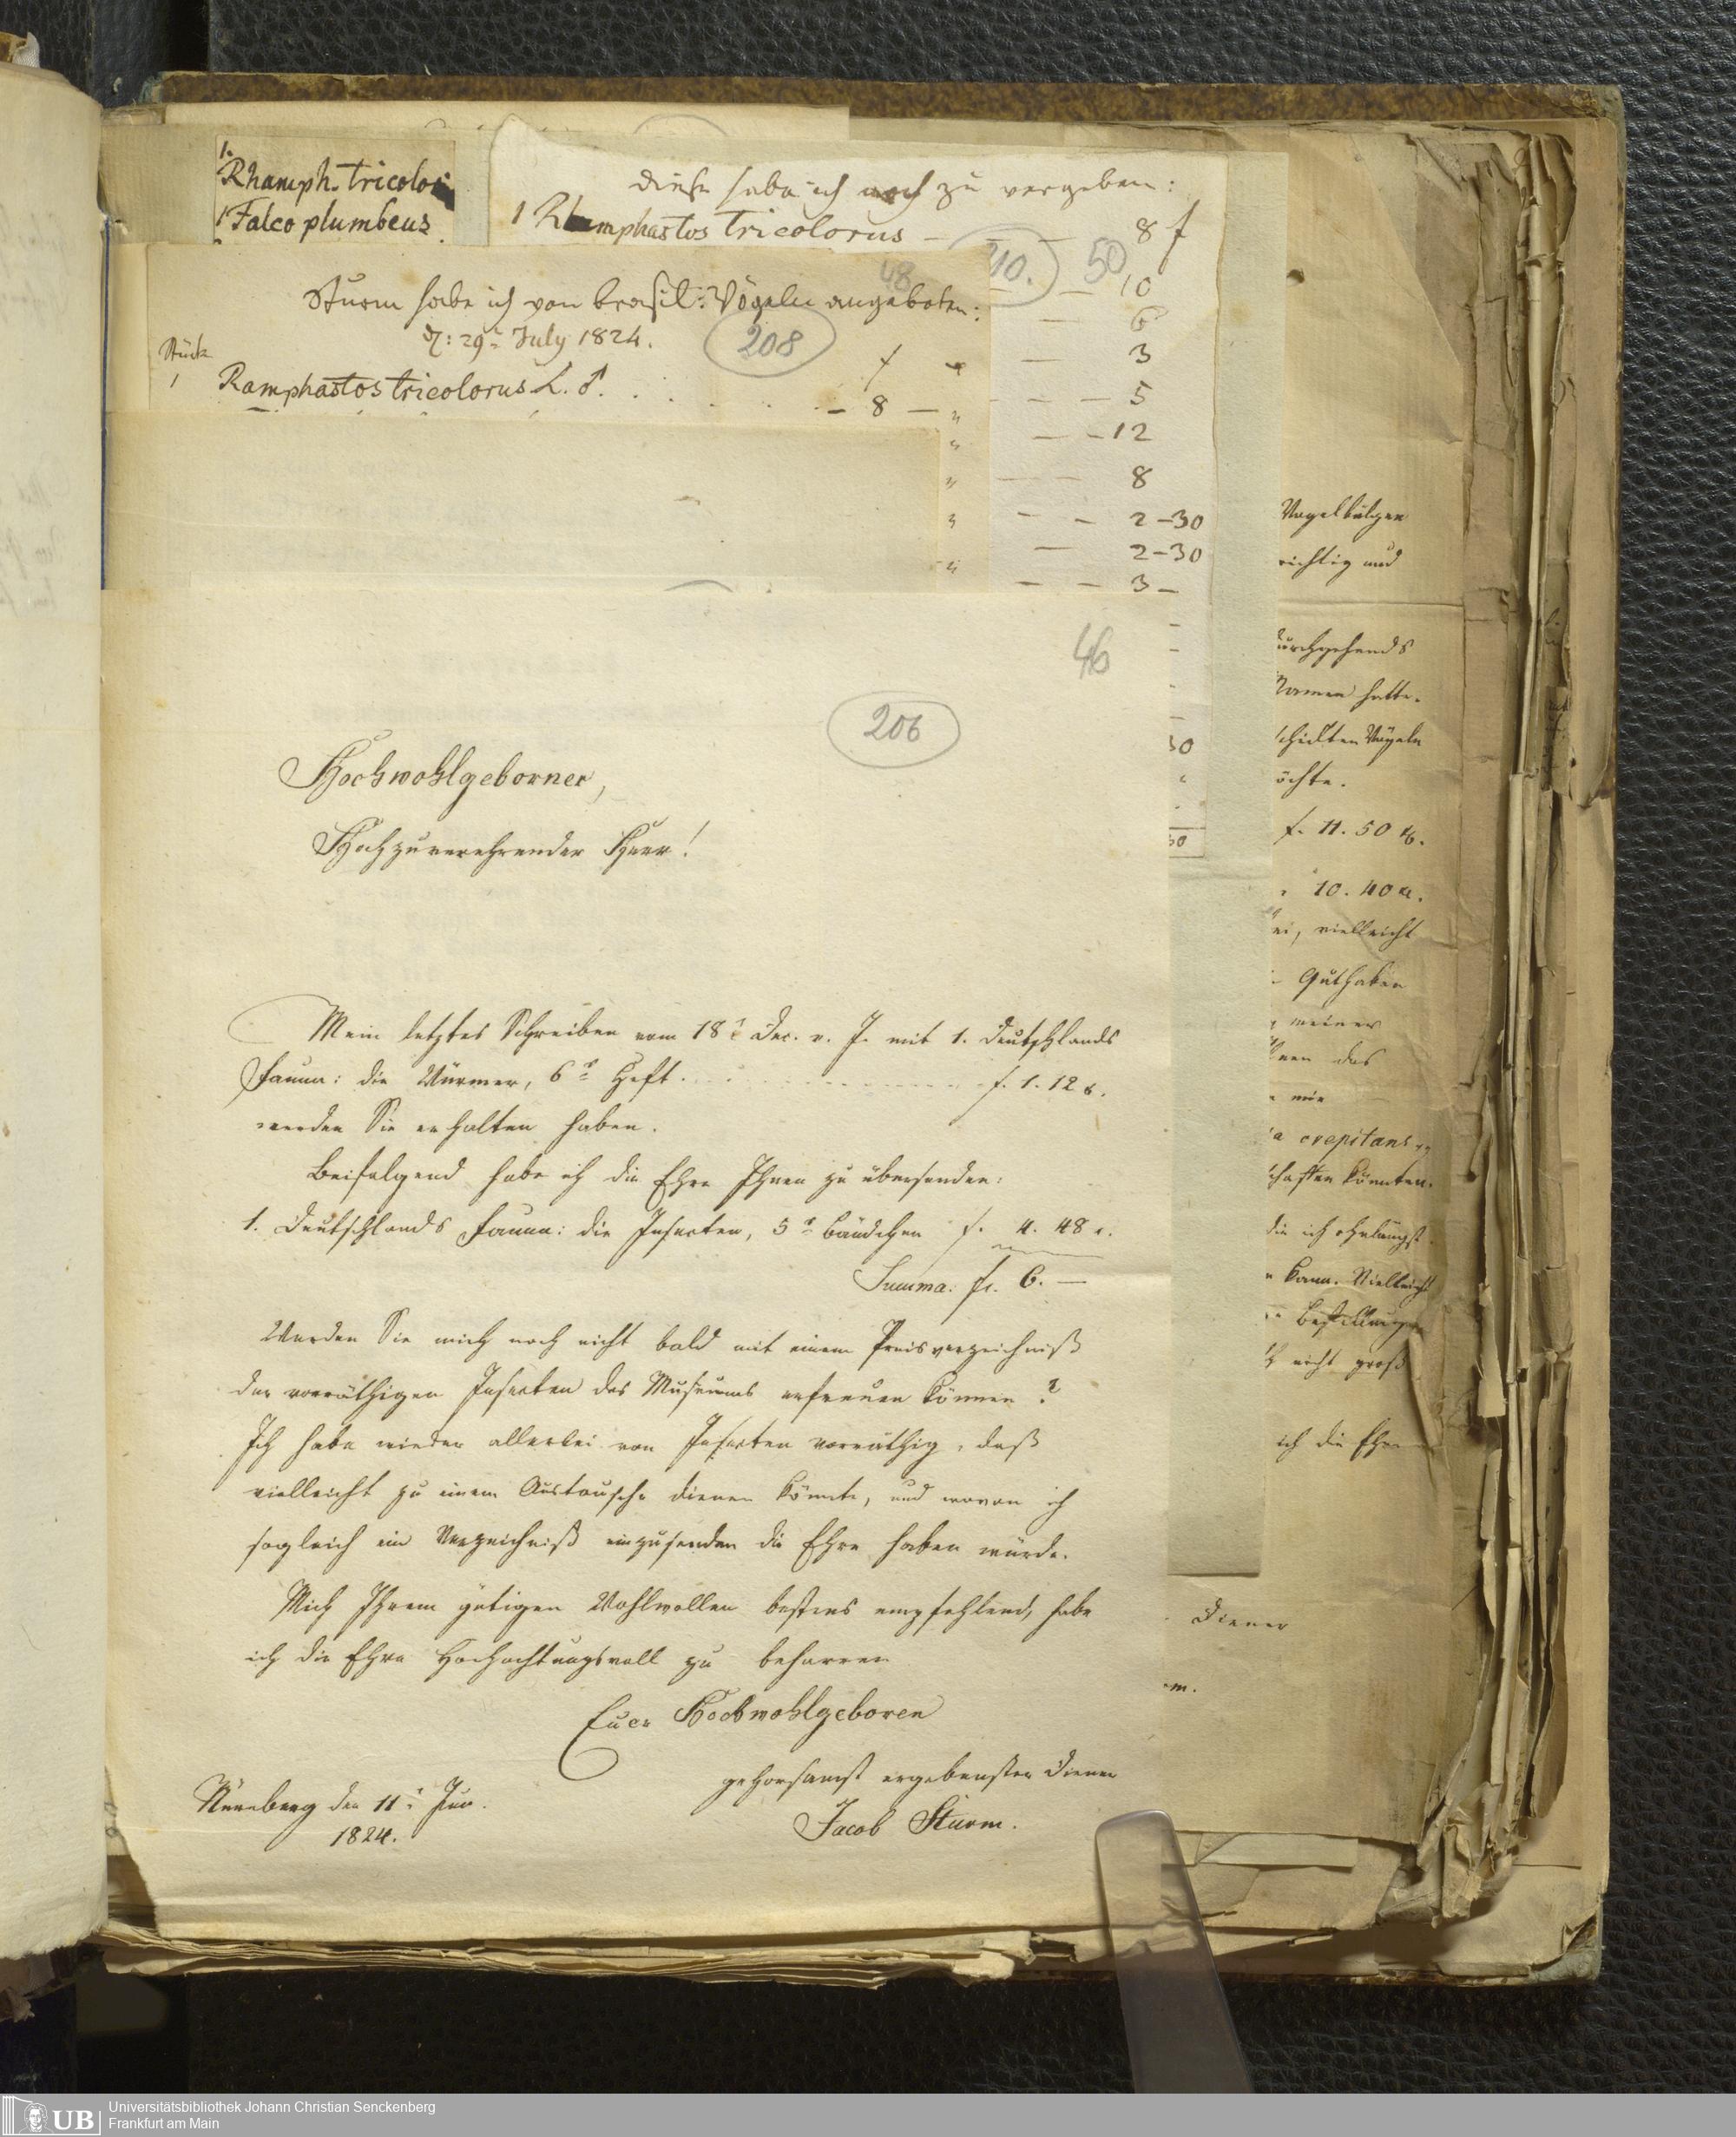 1.
Rhamph. tricolor
1 Falco plumbeus
diese habe ich noch zu vergeben:
1 Rhamphastos tricolorus — — — 8 f
40. 50
— 10
— 6
— 3
— — — 5
— — 12
— — 8
— — 2 – 30
— 2 – 30
— — 3 –
48
Sturm habe ich von brasil: Vögeln angeboten:
d: 29t July 1824.
208
Stück
1 Ramphastos tricolorus L. ♂. . . . . . – 8 – "
46
206
Hochwohlgeborner,
Hochzuverehrender Herr!
Mein letztes Schreiben vom 18t Dec. v. J. mit 1. Deutschlands
Fauna: die Würmer, 6s Heft. . . . . . . . . f. 1. 12 x.
werden Sie erhalten haben.
Beifolgend habe ich die Ehre Ihnen zu übersenden:
1. Deutschlands Fauna: die Insecten, 5s Bändchen f. 4. 48 x.
Summa. fl. 6. —
Werden Sie mich noch nicht bald mit einem Preisverzeichniß
der vorräthigen Insecten des Museums erfreuen können?
Ich habe wieder allerlei von Insecten vorräthig, daß
vielleicht zu einem Austausche dienen könnte, und wovon ich
sogleich ein Verzeichniß einzusenden die Ehre haben würde.
Mich Ihrem gütigen Wohlwollen bestens empfehlend, habe
ich die Ehre Hochachtungsvoll zu beharren
Euer Hochwohlgeboren
gehorsamst ergebenster Diener
Jacob Sturm.
Nürnberg den 11t
1824.
Vogelbälgen
richtig und
durchgehends
Namen hatte.
schickten Vögeln
öchte.
f. 11. 50 x.
10. 40 x.
ei, vielleicht
Guthaben
meiner
hnen das
mir
a crepitans
chaffen könnten.
die ich ohnlängst
kann. Vielleicht
Bestellungen
nicht groß
ich die Ehre
Diener
m.
UB Universitätsbibliothek Johann Christian Senckenberg
Frankfurt am Main